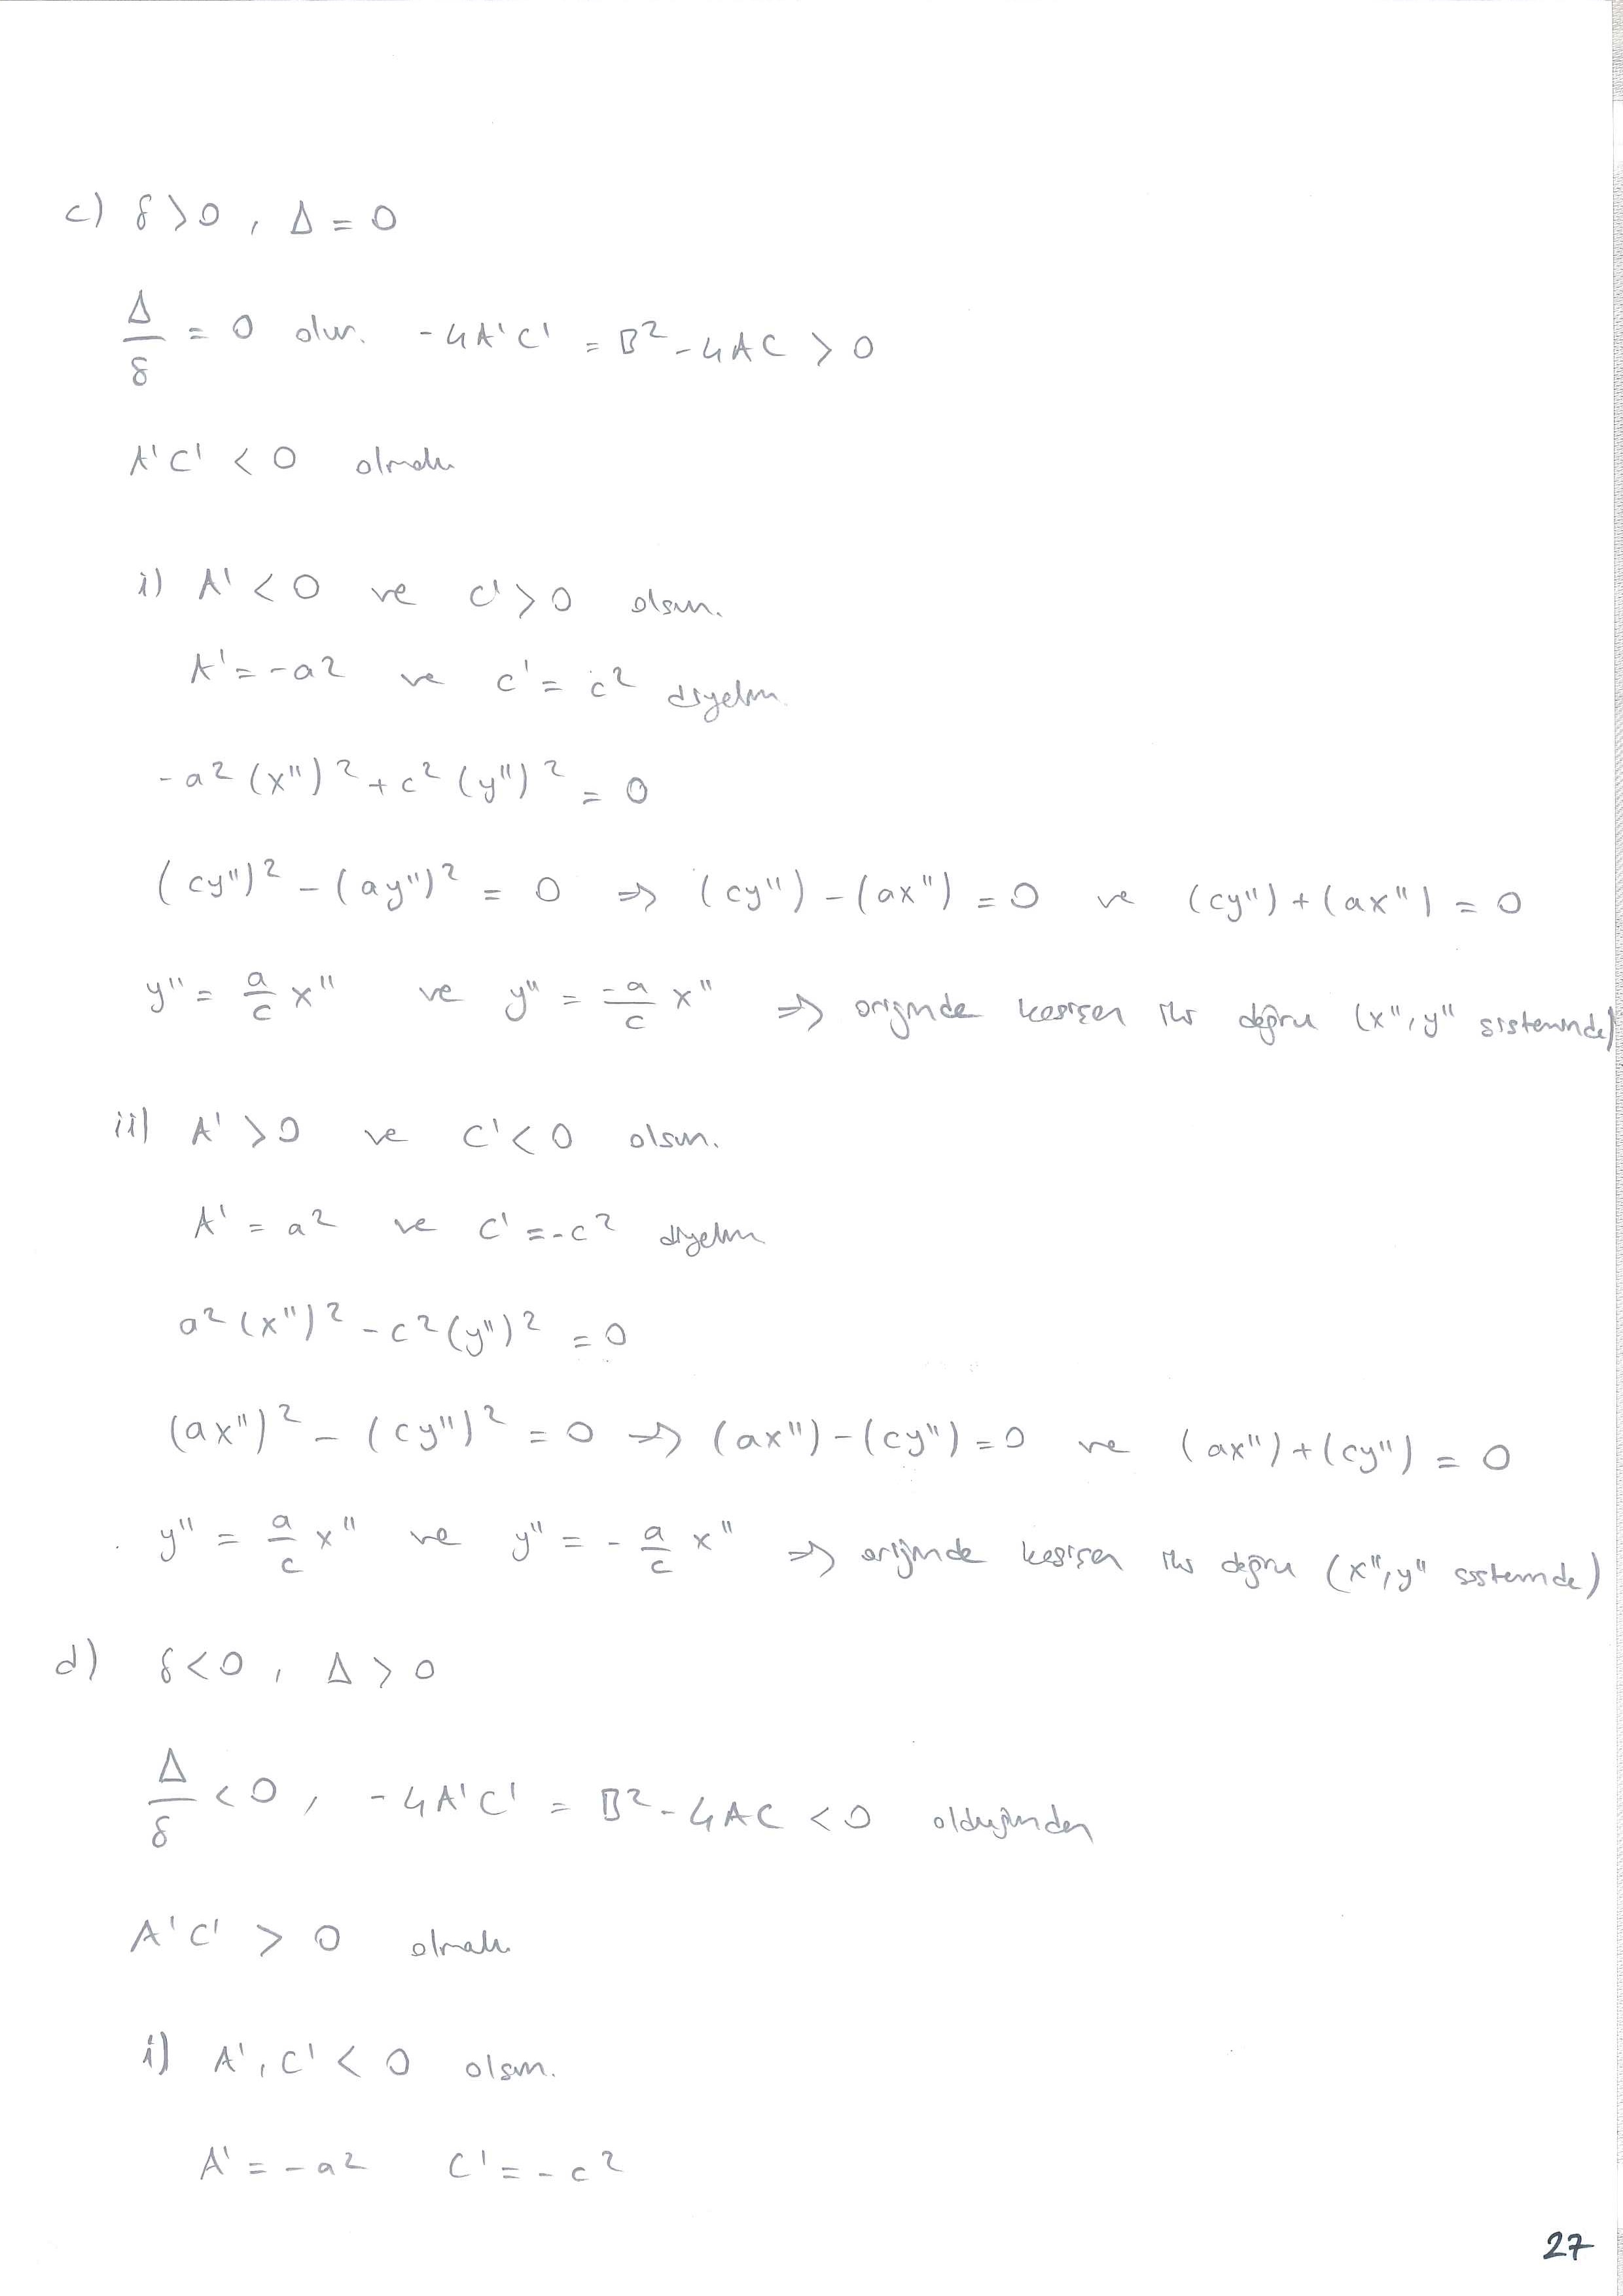 c) δ > 0 , Δ = 0
Δ/δ = 0 olur. -4A'C' = B² - 4AC > 0
A'C' < 0 olmalı
i) A' < 0 ve C' > 0 olsun.
A' = -a² ve C' = c² diyelim.
-a² (x'')² + c² (y'')² = 0
(cy'')² - (ay'')² = 0 ⇒ (cy'') - (ax'') = 0 ve (cy'') + (ax'') = 0
y'' = a/c x'' ve y'' = -a/c x'' ⇒ orijinde kesişen iki doğru (x'', y'' sisteminde)
ii) A' > 0 ve C' < 0 olsun.
A' = a² ve C' = -c² diyelim
a² (x'')² - c² (y'')² = 0
(ax'')² - (cy'')² = 0 ⇒ (ax'') - (cy'') = 0 ve (ax'') + (cy'') = 0
y'' = a/c x'' ve y'' = - a/c x'' ⇒ orijinde kesişen iki doğru (x'', y'' sisteminde)
d) δ < 0 , Δ > 0
Δ/δ < 0 , -4A'C' = B² - 4AC < 0 olduğundan
A'C' > 0 olmalı
i) A', C' < 0 olsun.
A' = -a² C' = -c²
27